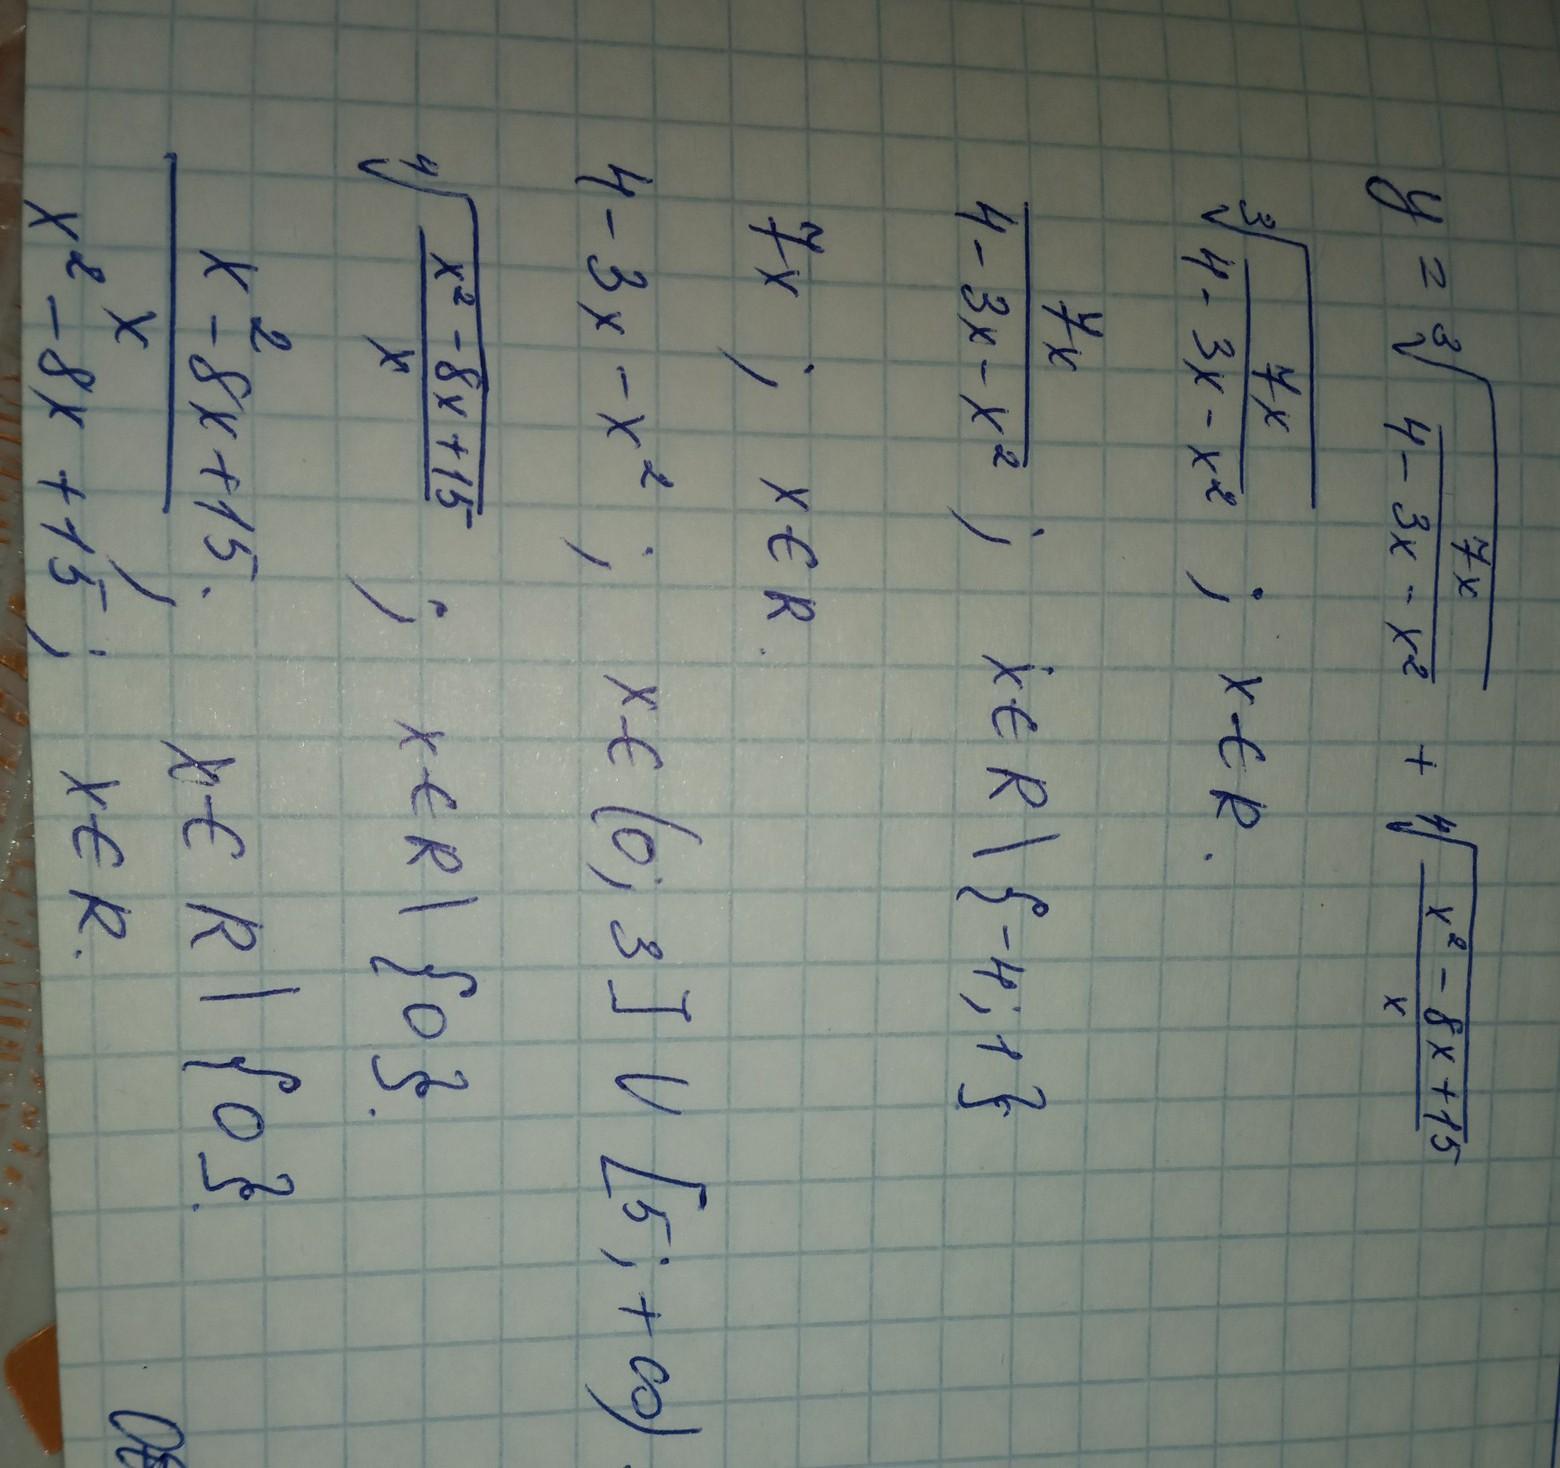 y = ∛(7x / (4 - 3x - x²)) + ∜((x² - 8x + 15) / x)
∛(7x / (4 - 3x - x²)) ; x ∈ R.
7x / (4 - 3x - x²) ; x ∈ R \ {-4; 1}
7x ; x ∈ R.
4 - 3x - x² ; x ∈ (0; 3] U [5; +∞)
∜((x² - 8x + 15) / x) ; x ∈ R \ {0}.
(x² - 8x + 15) / x ; x ∈ R \ {0}.
x² - 8x + 15 ; x ∈ R.